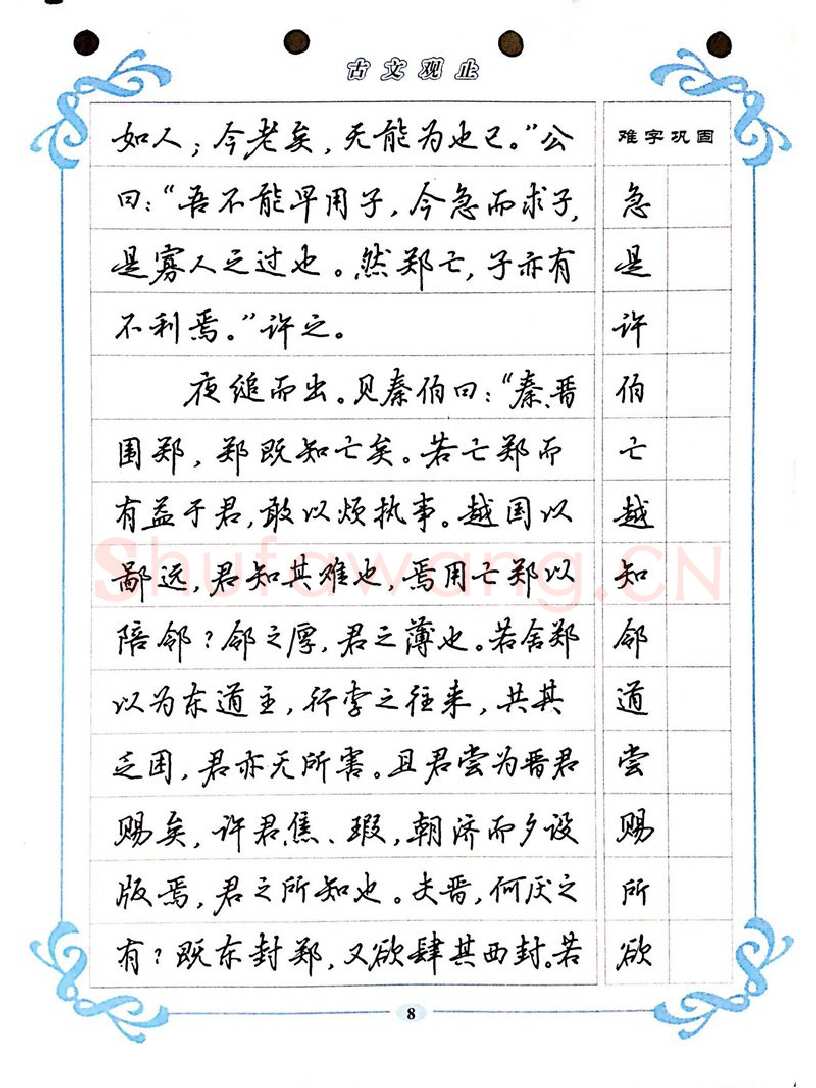 古文观止
如人；今老矣，无能为也已。”公
曰：“吾不能早用子，今急而求子，
是寡人之过也。然郑亡，子亦有
不利焉。”许之。
夜缒而出。见秦伯曰：“秦、晋
围郑，郑既知亡矣。若亡郑而
有益于君，敢以烦执事。越国以
鄙远，君知其难也，焉用亡郑以
陪邻？邻之厚，君之薄也。若舍郑
以为东道主，行李之往来，共其
乏困，君亦无所害。且君尝为晋君
赐矣，许君焦、瑕，朝济而夕设
版焉，君之所知也。夫晋，何厌之
有？既东封郑，又欲肆其西封。若
难字巩固
急
是
许
伯
亡
越
知
邻
道
尝
赐
所
欲
Shufawang.CN
8